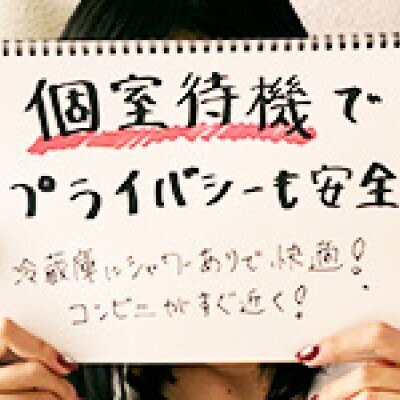 個室待機で
プライバシーも安全
冷蔵庫にシャワーありで快適!
コンビニがすぐ近く!